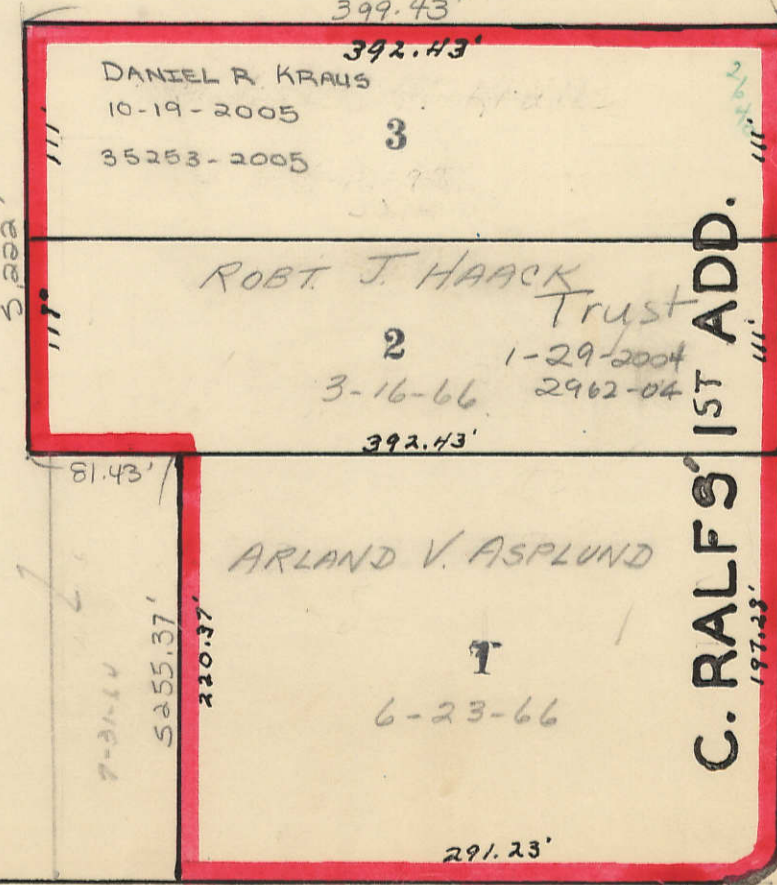 399.43'
392.43'
DANIEL R KRAUS
10-19-2005
35253-2005
3
111'
111'
5,222'
ROBT. J. HAACK
Trust
2
1-29-2004
3-16-66
2962-04
111'
392.43'
81.43'
ARLAND V. ASPLUND
1
6-23-66
5255.37'
220.37'
7-31-64
197.23'
291.23'
C. RALFS' 1ST ADD.